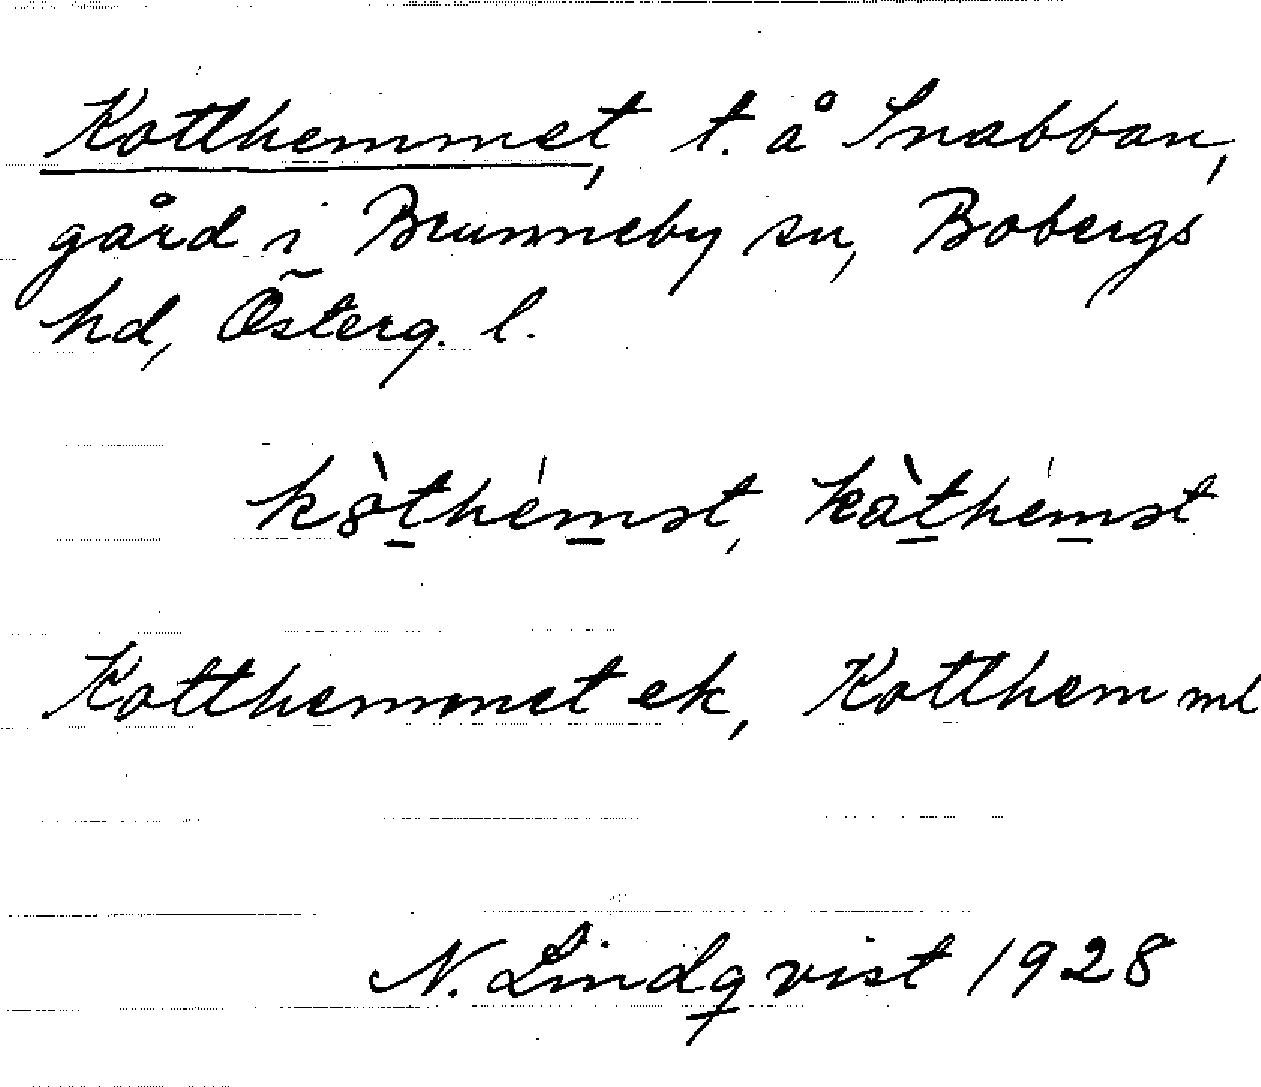 Kotthemmet, t. å Snabban,
gård i Brunneby sn, Bobergs
hd, Österg. l.
Kotthemmet ek, Kotthem ml
N. Lindqvist 1928